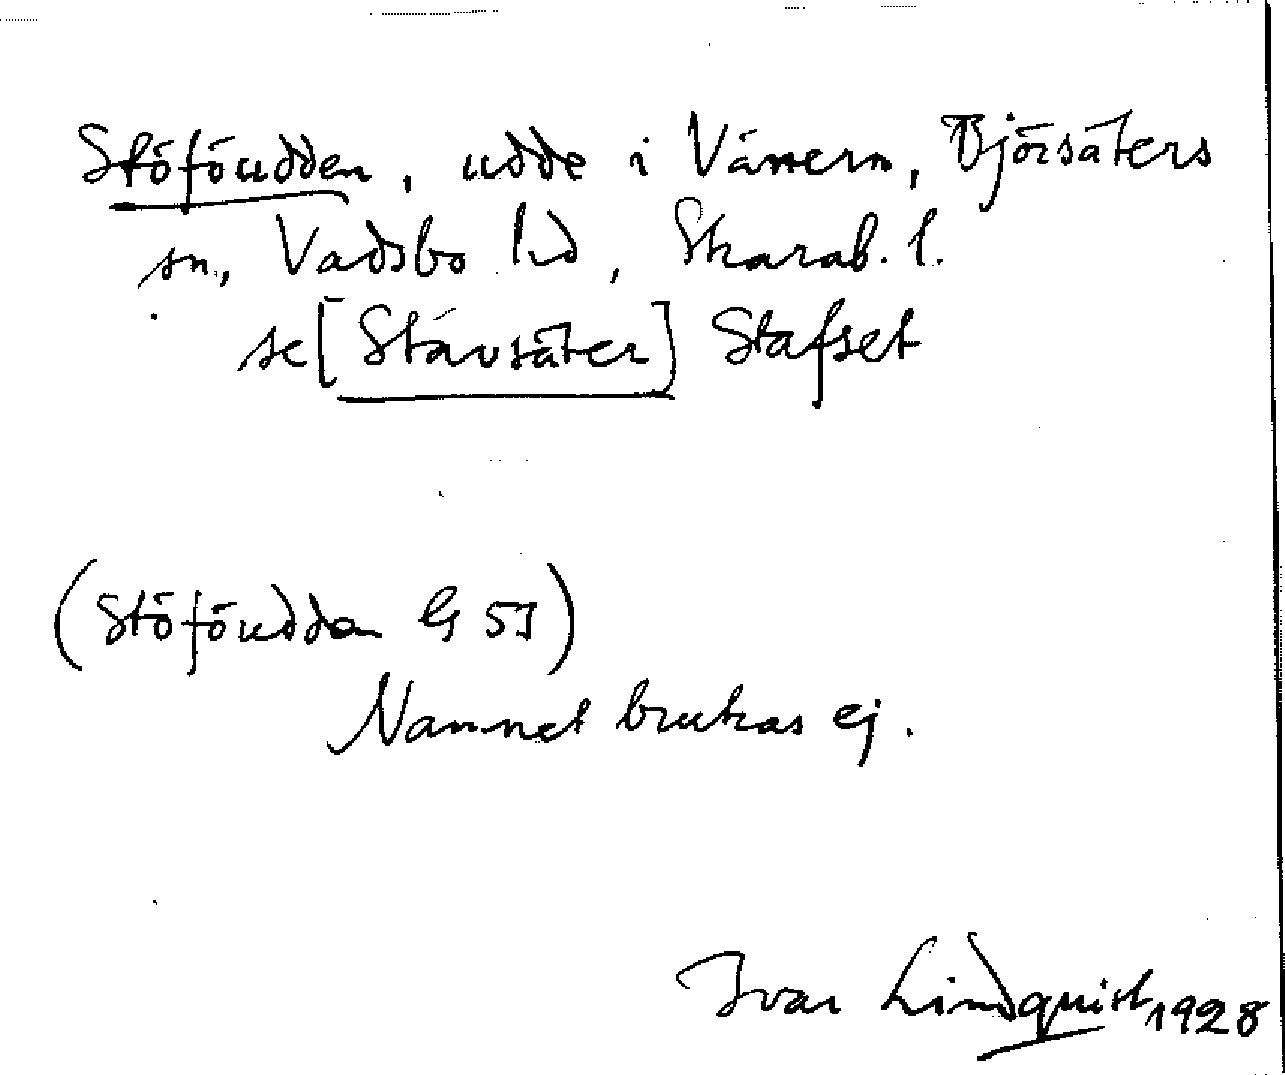 Stöföudden, udde i Vänern, Björsäters
sn, Vadsbo hd, Skarab. l.
se [Stävsäter] Stafset
(Stöföudden G 5J)
Namnet brukas ej.
Ivar Lindquist 1928